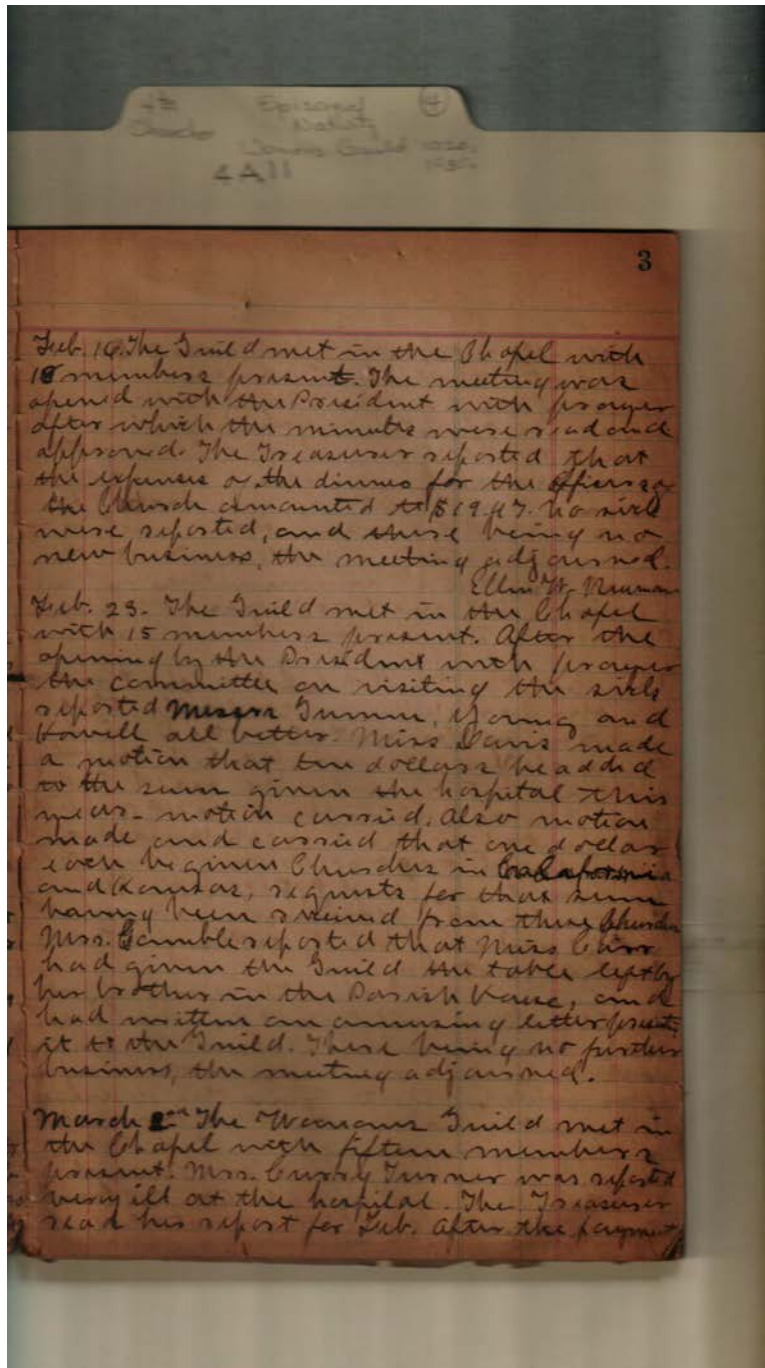 4th Episcopal 4
Church Nativity
Womans Guild 1920-
4A11 1936
3
Feb. 16. The Guild met in the Chapel with
18 members present. The meeting was
opened with the President with prayer
after which the minutes were read and
approved. The Treasurer reported that
the expenses of the dinner for the officers of
the Church amounted to $19.47. No sick
were reported, and there being no
new business, the meeting adjourned.
Ellen W. Neuman
Feb. 23. The Guild met in the Chapel
with 15 members present. After the
opening by the President with prayer
the committee on visiting the sick
reported Messrs Young and
Howell all better. Miss Davis made
a motion that ten dollars be added
to the sum given the hospital this
year - motion carried. Also motion
made and carried that one dollar
each be given Churches in California
and Kansas, requests for that sum
having been received from these Churches
Mrs. Gamble reported that Miss Carr
had given the Guild the table left by
her brother in the Parish House, and
had written an amusing letter presenting
it to the Guild. There being no further
business, the meeting adjourned.
March 2nd The Womans Guild met in
the Chapel with fifteen members
present. Mrs. Curry Turner was reported
very ill at the hospital. The Treasurer
read her report for Feb. After the payment